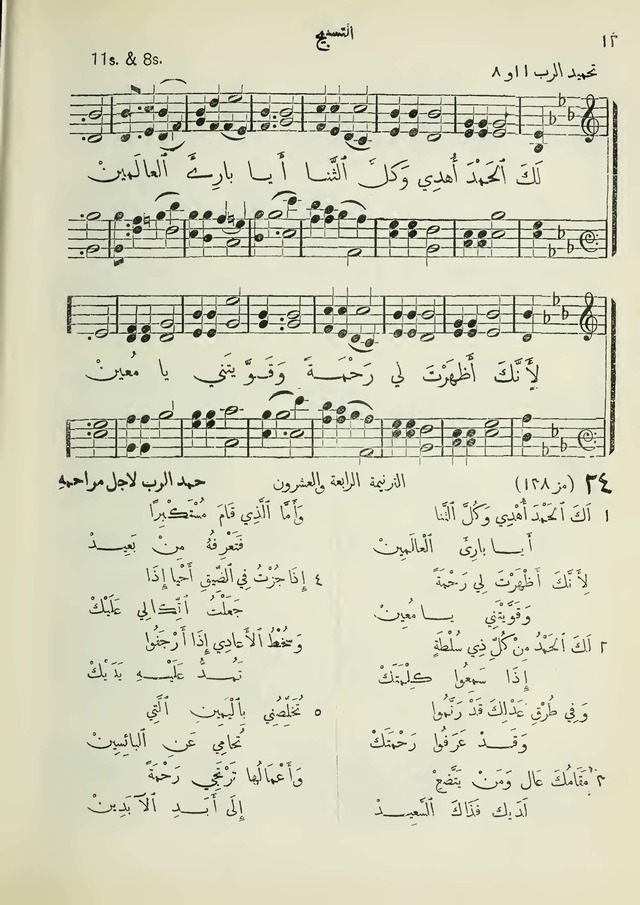 ١٢
التسبيح
11s. & 8s.
تحميد الرب ١١ و ٨
لَكَ ٱلحَمْدَ أُهدِي وَكلَّ ٱلثَّنا أَيا بارِئَ ٱلعالَمِينْ
لِأَنَّكَ أَظهَرْتَ لي رَحْمَةً وَقوَّيتَني يا مُعِينْ
٢٤ (مز ١٣٨) الترنيمة الرابعة والعشرون حمد الرب لاجل مراحمه
١ لَكَ ٱلحَمْدَ أُهْدِي وَكُلَّ ٱلثَّنا
أَيا بارِئَ ٱلْعَالَمِينْ
لِأَنَّكَ اظْهَرْتَ لِي رَحْمَةً
وَقَوَّيْتَنِي يا مُعِينْ
٢ لَكَ ٱلحَمْدُ مِنْ كُلِّ ذِي سُلْطَةٍ
إِذَا سَمِعُوا كِلْمَتَكْ
وَفِي طُرْقِ عَدْلِكَ قَدْ رَنَّمُوا
وَقَدْ عَرَفُوا رَحْمَتَكْ
٣ مَقَامُكَ عَالٍ وَمَنْ يَتَّضِعْ
لَدَيكَ فَذَاكَ ٱلسَّعِيدْ
وَأَمَّا ٱلَّذِي قَامَ مُسْتَكْبِرًا
فَتَعْرِفُهُ مِنْ بَعِيدْ
٤ إِذَا جُزْتُ فِي ٱلضِّيقِ أَحْيا إِذَا
جَعَلْتُ ٱتِّكالِي عَلَيْكْ
وَسُخْطُ ٱلأَعادِي إِذَا أَرْجَفُوا
تَمُدُّ عَلَيْهِ يَدَيْكْ
٥ تُخَلِّصُنِي بِٱلْيَمِينِ ٱلَّتِي
تُحَامِي عَنِ ٱلبَائِسِينْ
وَأَعْمَالُها تَرْتَجِي رَحْمَةً
إِلَى أَبَدِ ٱلآبَدِينْ